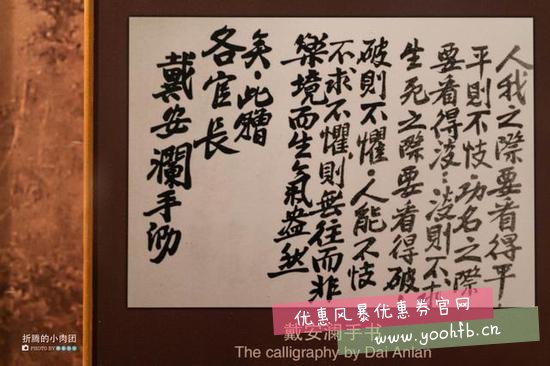 人我之際要看得平．
平則不忮．功名之際
要看得淡．淡則不求
生死之際要看得破．
破則不懼．人能不忮
不求不懼則無往而非
樂境而生氣盎然
矣．此贈
各官長
戴安瀾手泐
优惠风暴优惠券官网
www.yoohfb.cn
戴安澜手书
The calligraphy by Dai Anlan
折腾的小肉团
PHOTO BY